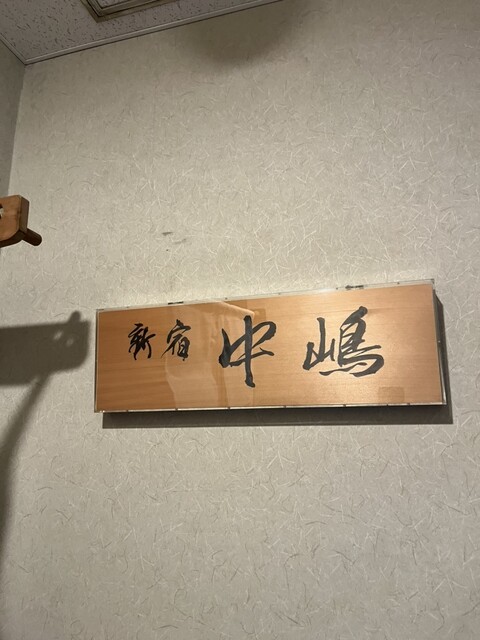 新宿 中嶋